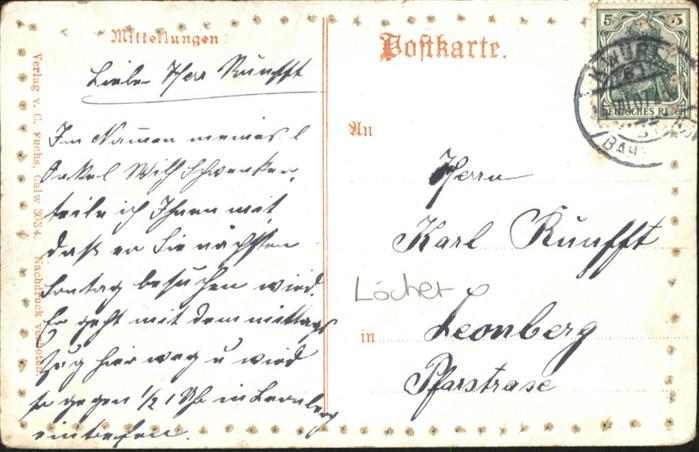 Mitteilungen
Lieber Herr Kunfft
Im Namen meines l
Onkel Wilh Schwenker,
teile ich Ihnen mit
daß er Sie nächsten
Sontag besuchen wird.
Er geht mit dem mittags
Zug hier weg u wird
so gegen 1/2 1 Uhr in Leonberg
eintreffen.
Verlag v. C. Fuchs, Calw 3034. Nachdruck verboten.
Postkarte.
5 5
DEUTSCHES REICH
An
Herrn
Karl Kunfft
Löcher
in Leonberg
Pfarstrase